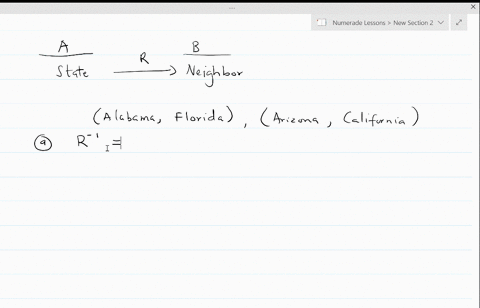 Numerade Lessons > New Section 2
A R B
State → Neighbor
(Alabama, Florida), (Arizona, California)
ⓐ R⁻¹ =